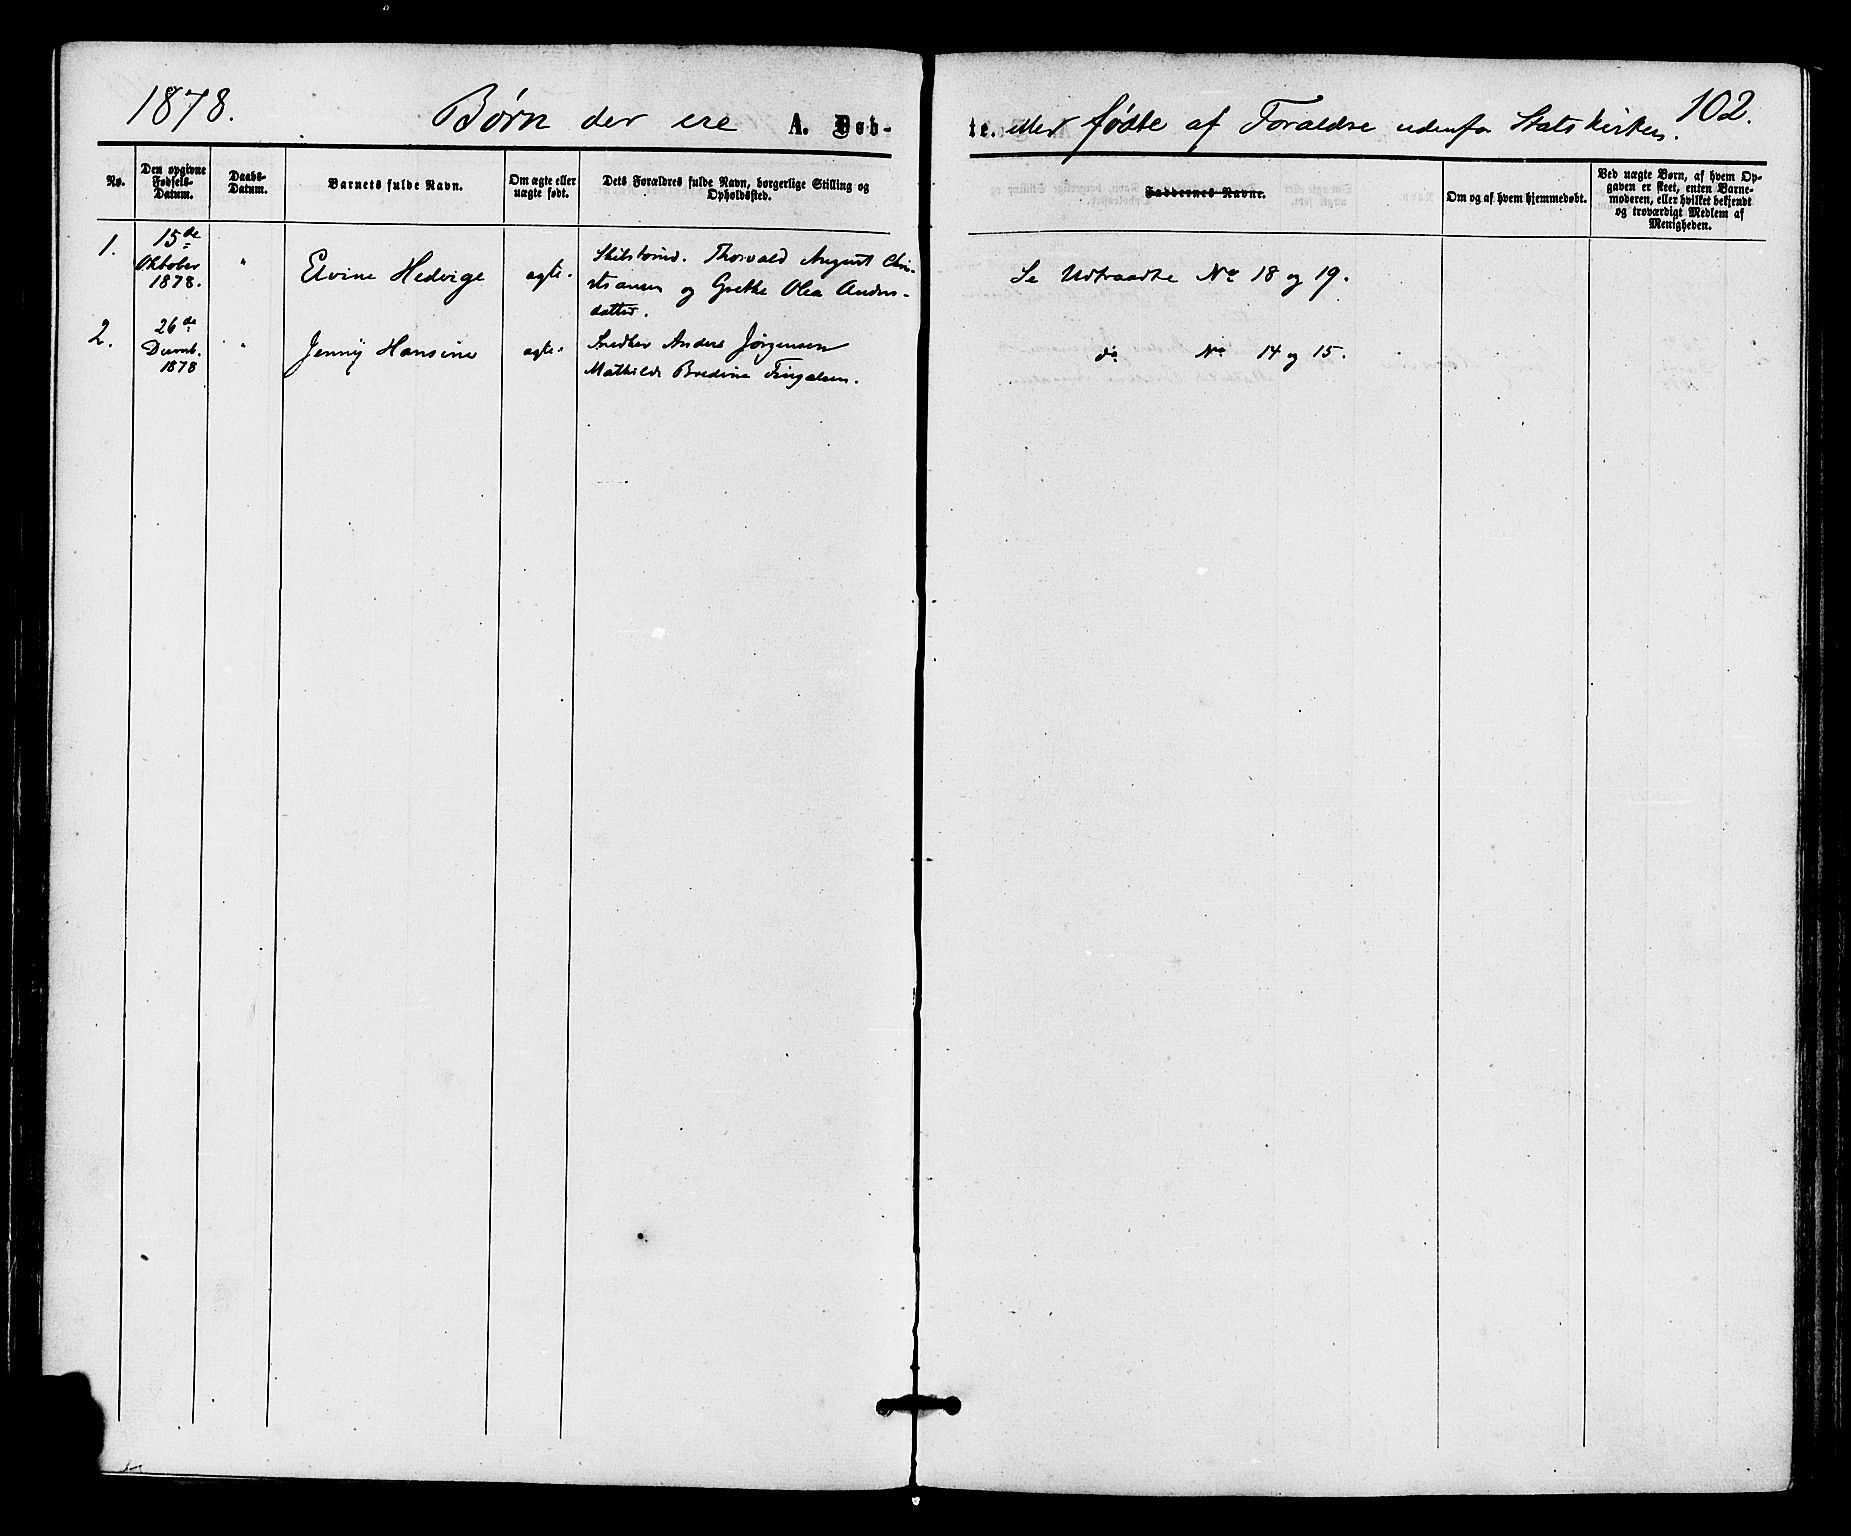 1878. Børn der ere A. Døb-
te. eller fødte af Foraldre udenfor Statskirken. 102.
No.
Den opgivne
Fødsels-
Datum.
Daabs-
Datum.
Barnets fulde Navn.
Om ægte eller
uægte født.
Dets Forældres fulde Navn, borgerlige Stilling og
Opholdssted.
Faddernes Navne.
Om og af hvem hjemmedøbt.
Ved uægte Børn, af hvem Op-
gaven er skeet, enten Barne-
moderen, eller hvilket bekjendt
og troværdigt Medlem af
Menigheden.
1.
15de
Oktober
1878.
"
Elvine Hedvige
ægte.
Thorvald August Chri-
stiansen og Grethe Olea Anders-
datter.
Se Udtraadte No 18 og 19.
2.
26de
Decemb.
1878
"
Jenny Hansine
ægte.
Snedker Anders Jørgensen
Mathilde Bredine Fingalsen.
do No 14 og 15.